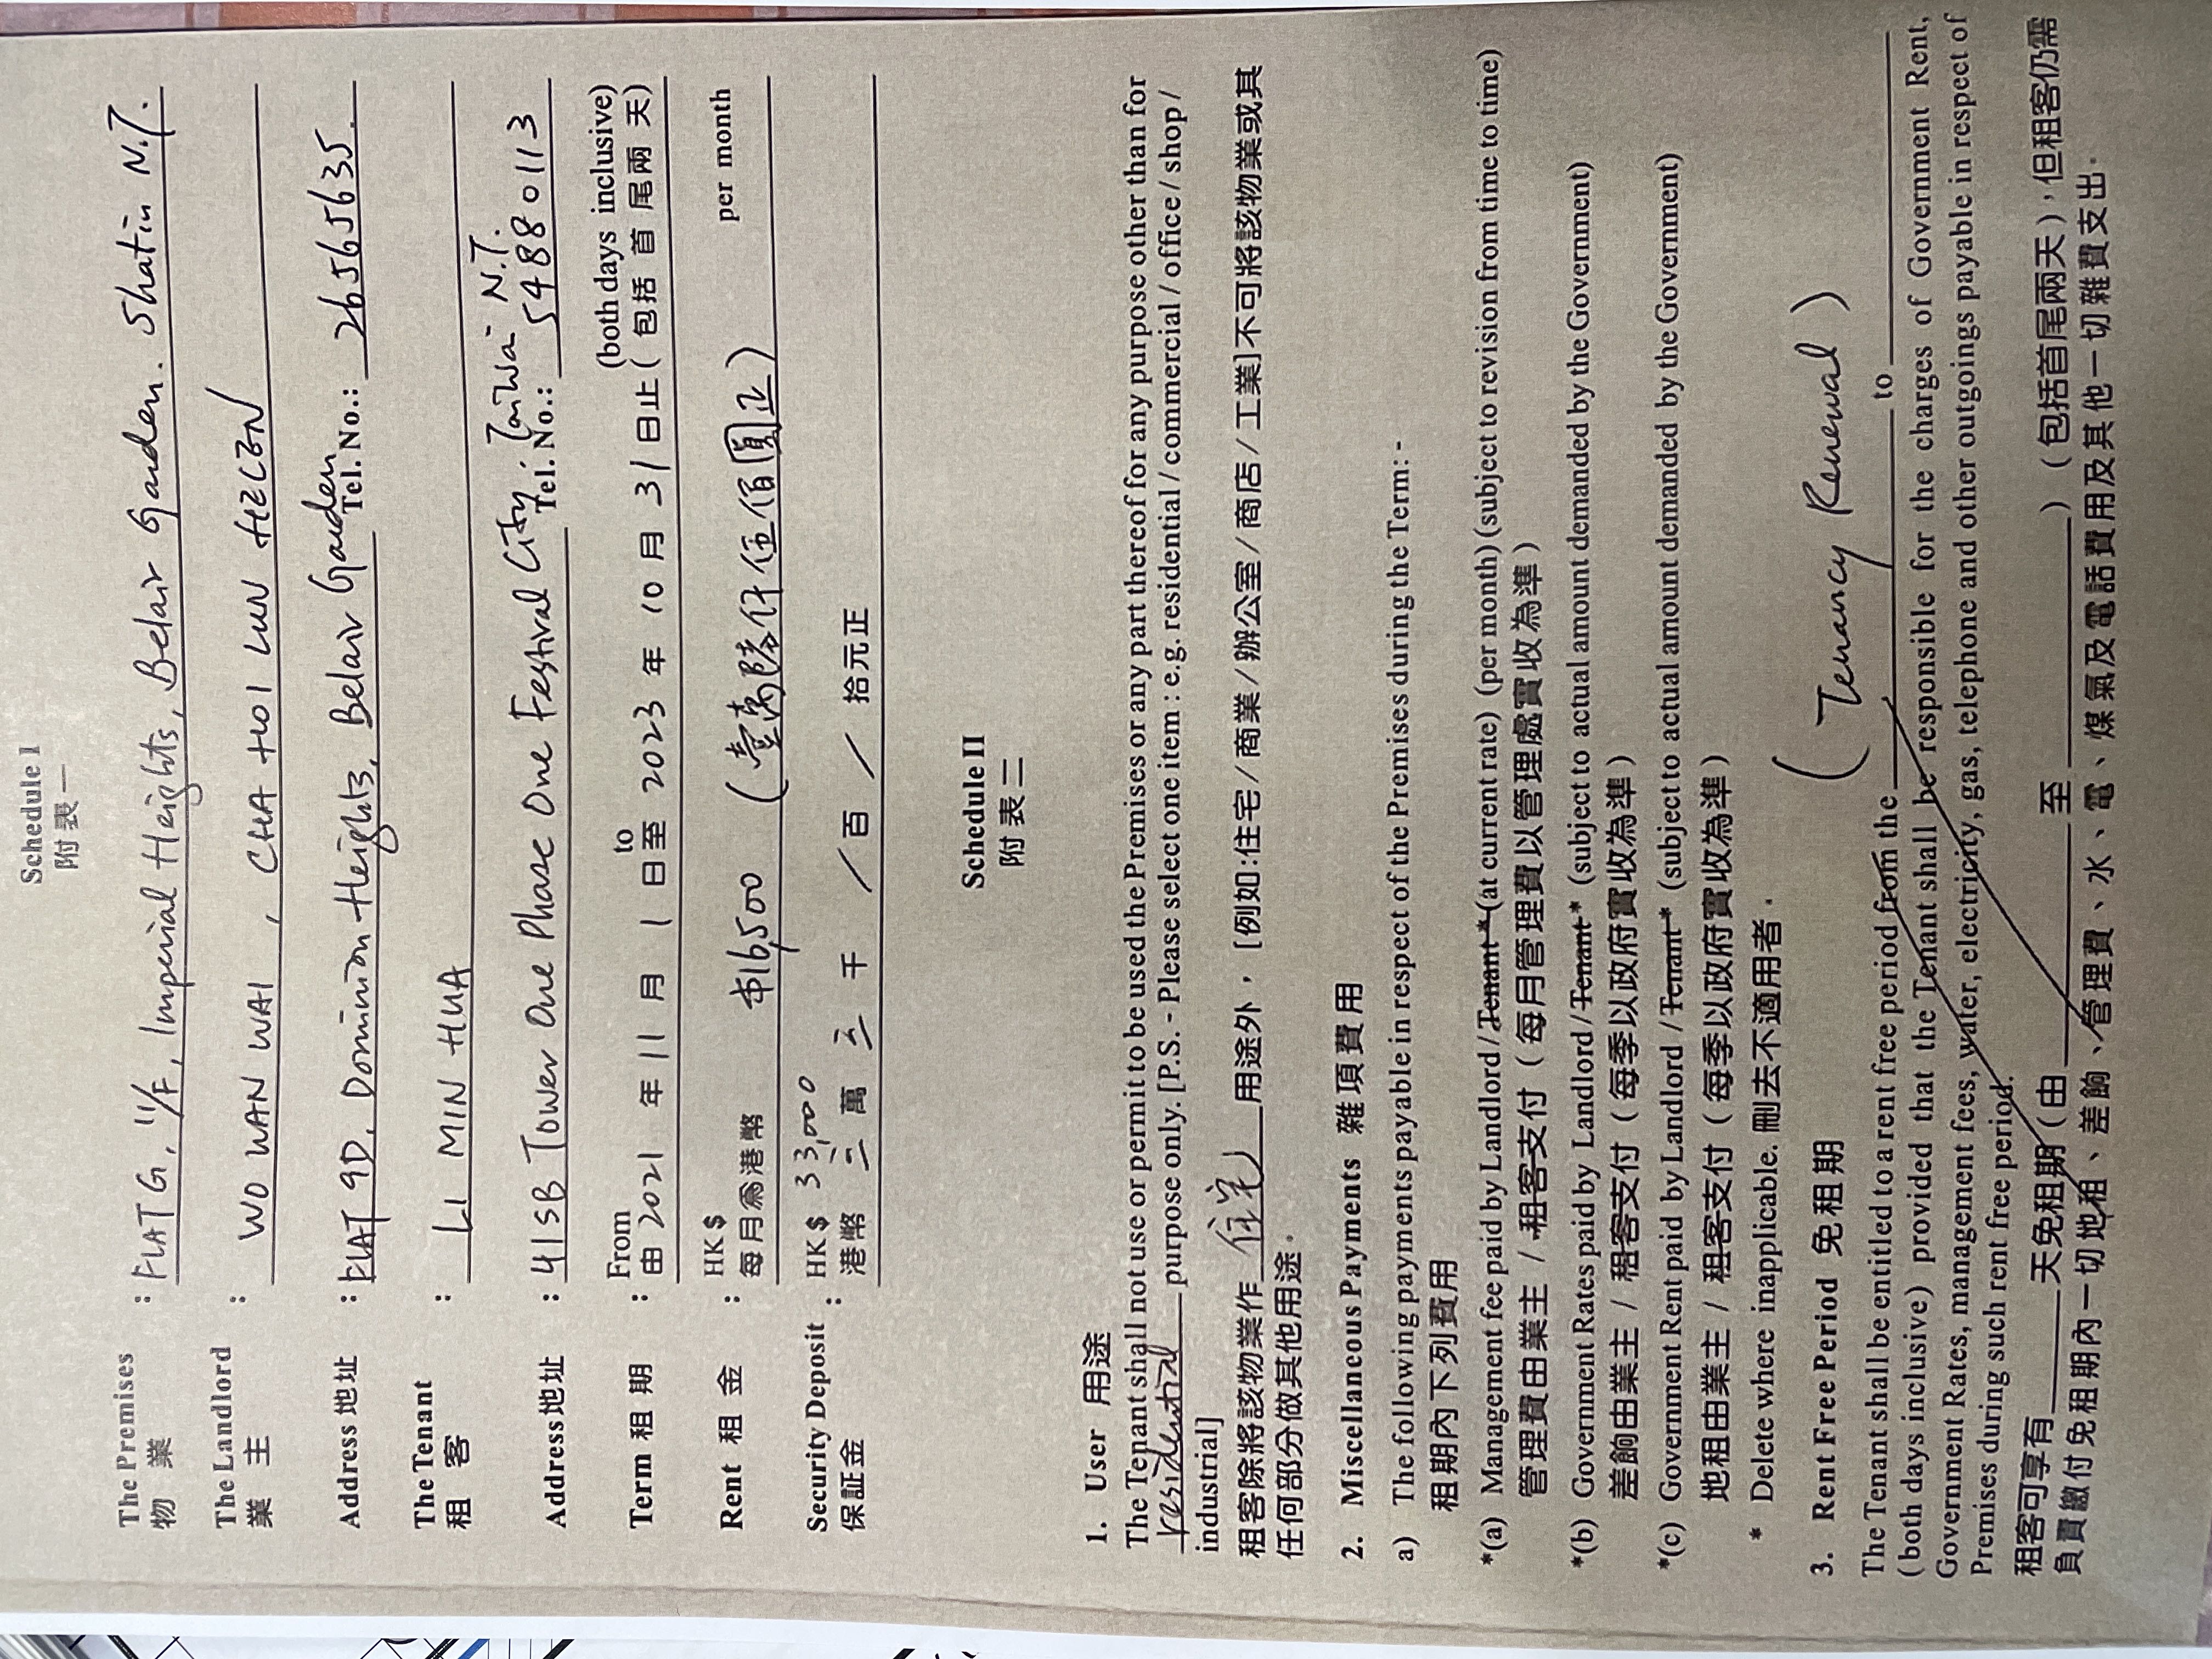 Schedule I
附表一
The Premises : FLAT G, 11/F, Imperial Heights, Belair Garden. Shatin N.T.
物 業
The Landlord : WO WAN WAI , CHA HOI LUN
業 主
Address 地址 : FLAT 9D, Dominion Heights, Belair Garden Tel. No.: 26565635.
The Tenant : LI MIN HUA
租 客
Address 地址 : 41SB Tower One Phase One Festival City, TaiWai N.T. Tel. No.: 54880113
From to (both days inclusive)
Term 租 期 : 由 2021 年 11 月 1 日至 2023 年 10 月 31 日止 ( 包括 首 尾 兩 天 )
HK$ per month
Rent 租 金 : 每月為港幣 $16,500 (壹萬陸仟伍佰圓正)
Security Deposit : HK$ 33,000
保証金 港幣 三 萬 三 千 / 百 / 拾元正
Schedule II
附表二
1. User 用途
The Tenant shall not use or permit to be used the Premises or any part thereof for any purpose other than for
residential purpose only. [P.S. - Please select one item : e.g. residential / commercial / office / shop /
industrial]
租客除將該物業作 住宅 用途外，[例如:住宅/商業/辦公室/商店/工業]不可將該物業或其
任何部分做其他用途.
2. Miscellaneous Payments 雜項費用
a) The following payments payable in respect of the Premises during the Term: -
租期內下列費用
*(a) Management fee paid by Landlord / Tenant * (at current rate) (per month) (subject to revision from time to time)
管理費由業主 / 租客支付（每月管理費以管理處實收為準）
*(b) Government Rates paid by Landlord / Tenant * (subject to actual amount demanded by the Government)
差餉由業主 / 租客支付（每季以政府實收為準）
*(c) Government Rent paid by Landlord / Tenant * (subject to actual amount demanded by the Government)
地租由業主 / 租客支付（每季以政府實收為準）
* Delete where inapplicable. 刪去不適用者.
3. Rent Free Period 免租期
(Tenancy Renewal)
The Tenant shall be entitled to a rent free period from the to
(both days inclusive) provided that the Tenant shall be responsible for the charges of Government Rent,
Government Rates, management fees, water, electricity, gas, telephone and other outgoings payable in respect of
Premises during such rent free period.
租客可享有 天免租期（由 至 ）（包括首尾兩天），但租客仍需
負責繳付免租期內一切地租、差餉、管理費、水、電、煤氣及電話費用及其他一切雜費支出.